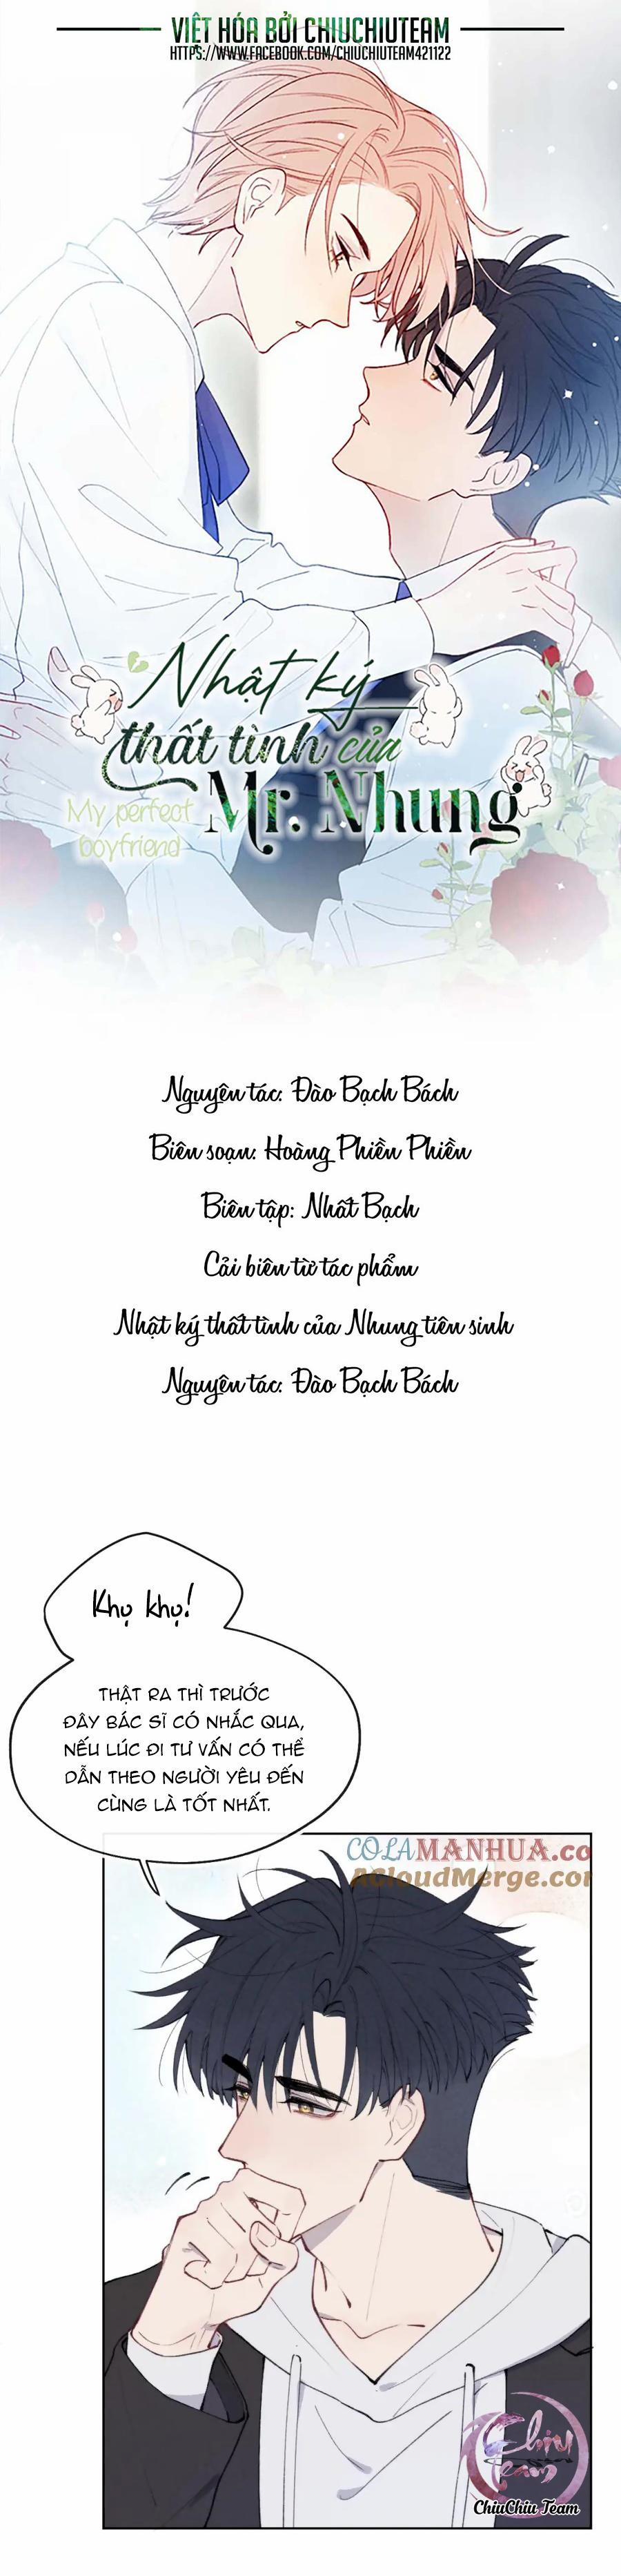 VIỆT HÓA BỞI CHIUCHIUTEAM
HTTPS://WWW.FACEBOOK.COM/CHIUCHIUTEAM421122
Nhật ký
thất tình của
Mr. Nhung
My perfect
boyfriend
Nguyên tác: Đào Bạch Bách
Biên soạn: Hoàng Phiền Phiền
Biên tập: Nhất Bạch
Cải biên từ tác phẩm
Nhật ký thất tình của Nhung tiên sinh
Nguyên tác: Đào Bạch Bách
Khụ khụ!
THẬT RA THÌ TRƯỚC
ĐÂY BÁC SĨ CÓ NHẮC QUA,
NẾU LÚC ĐI TƯ VẤN CÓ THỂ
DẪN THEO NGƯỜI YÊU ĐẾN
CÙNG LÀ TỐT NHẤT.
COLAMANHUA.co
ACloudMerge.com
Chiu
Team
ChiuChiu Team